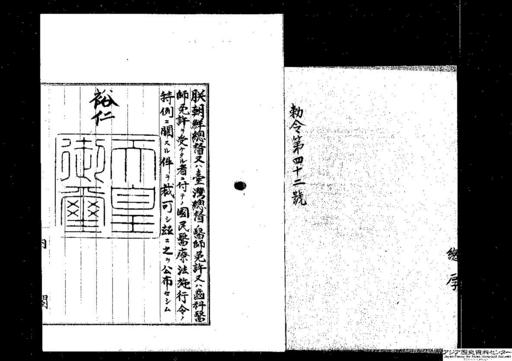 勅令第四十二號
朕朝鮮總督又ハ臺灣總督ノ醫師免許又ハ齒科醫
師免許ヲ受ケタル者ニ付テノ國民醫療法施行令ノ
特例ニ關スル件ヲ裁可シ玆ニ之ヲ公布セシム
裕仁
天皇
御璽
内閣
アジア歴史資料センター